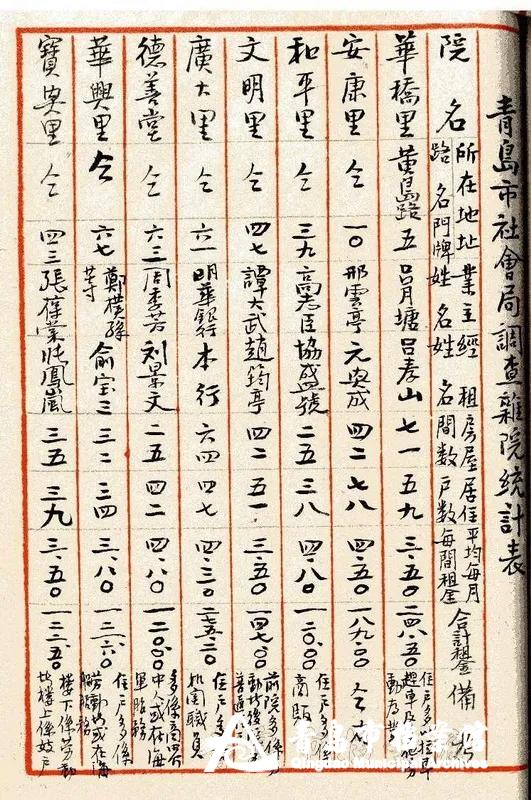 青島市社會局調查雜院統計表
院名 所在地址 路名 門牌 業主姓名 經租姓名 房屋間數 居住戶數 平均每月每間租金 合計租金 備考
華橋里 黄島路 五 呂月塘 呂孝山 七一 五九 三·五〇 二四八·五〇 住戶多以拉車
安康里 仝 一〇 邢雲亭 元興成 四二 七八 四·五〇 一八九·〇〇 仝
和平里 仝 三九 高志臣 協盛號 二五 三八 四·八〇 一二〇·〇〇 住戶多係商販
文明里 仝 四七 譚大武 趙筠亭 四二 五一 三·五〇 一四七·〇〇 前院多係
廣大里 仝 六一 明華銀行 本行 六四 四七 四·三〇 二七五·二〇 職員
德善堂 仝 六三 周季芳 劉景文 二五 四二 四·八〇 一二〇·〇〇 多係商界中人或在海軍服務
華興里 仝 六七 鄭横孫等 俞宝三 三二 三四 三·八〇 一二一·六〇 住戶多係勞動或在海
寶興里 仝 四三 張葆業 壯鳳嵐 三五 三九 三·五〇 一二二·五〇 樓下係勞動者樓上係妓戶
青島市檔案館
Qingdao Municipal Archives